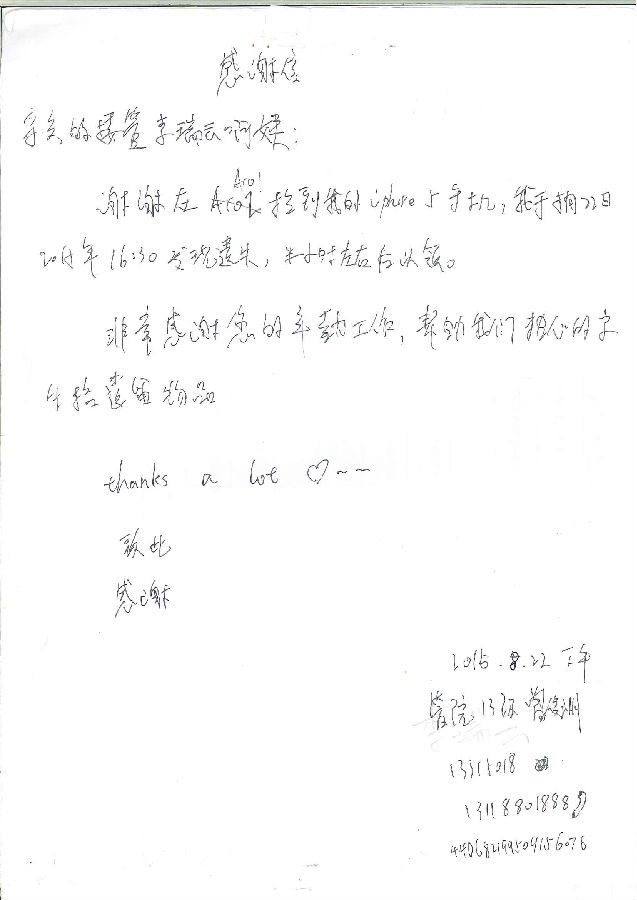 感谢信
亲爱的楼管李瑞云阿姨:
谢谢在 A101 捡到我的 iphone 5 手机,我于 22日
年 16:30 发现遗失,半小时左右后认领。
非常感谢您的辛勤工作,帮助我们粗心的
捡遗留物品
thanks a lot ♡~~
致此
感谢
2015.8.22 下午
管院 13级
13315018
13118801888